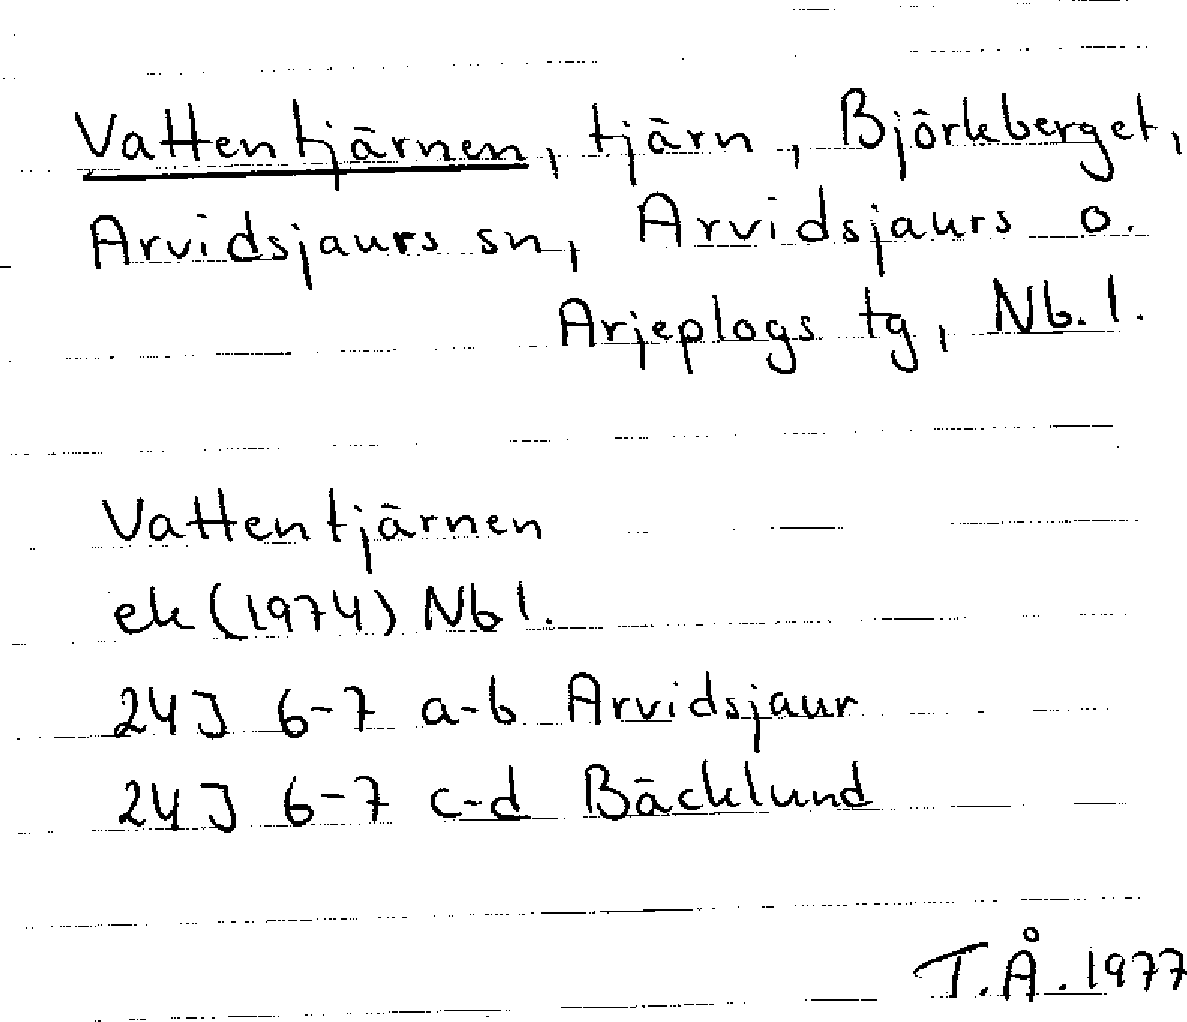 Vattentjärnen, tjärn, Björkberget,
Arvidsjaurs sn, Arvidsjaurs o.
Arjeplogs tg, Nb. l.
Vattentjärnen
ek (1974) Nb l.
24J 6-7 a-b Arvidsjaur
24J 6-7 c-d Bäcklund
T.Å. 1977